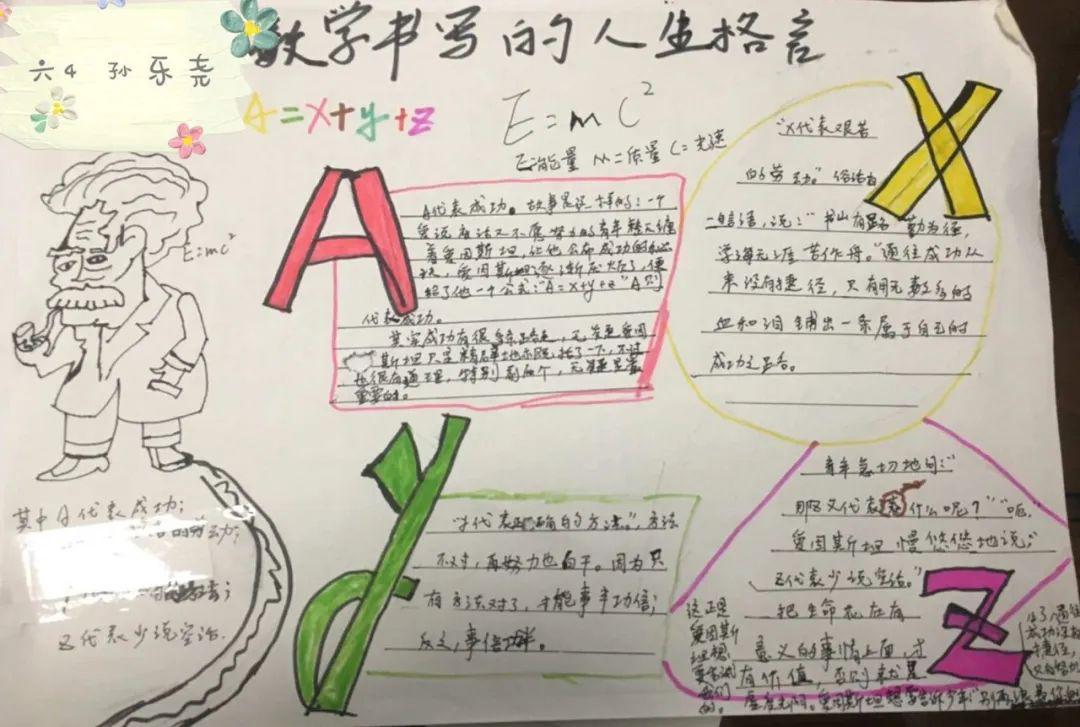 六4 孙乐尧
数学书写的人生格言
A=x+y+z
E=mc²
E=能量 M=质量 C=光速
E=mc²
A代表成功。故事是这样的：一个
爱说废话又不愿努力的青年整天缠
着爱因斯坦，让他公布成功的秘
诀，爱因斯坦逐渐厌烦了，便
给了他一个公式："A=x+y+z"A则
代表成功。
其实成功有很多
斯坦只是
也很有道理，特别
重要的。
"X代表艰苦
的劳动。"俗话
说："书山有路勤为径，
学海无涯苦作舟。"通往成功从
来没有捷径，只有用无数多的
血和泪铺出一条属于自己的
成功之路。
其中A代表成功；
劳动；
Z代表少说空话.
"y代表正确的方法。"，方法
不对，再努力也白干。因为只
有方法对了，才能事半功倍；
反之，事倍功半。
青年急切地问："
那Z又代表什么呢？""呃，"
爱因斯坦慢悠悠地说："
Z代表少说空话。"
把生命花在有
意义的事情上面，才
有价值，否则就是
虚度光阴。爱因斯坦想要告诉少年
这正是
爱因斯
坦想
要告诉
我们
的。